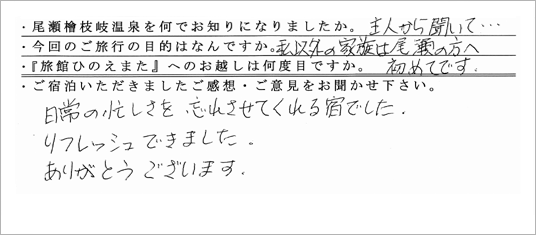 ・尾瀬檜枝岐温泉を何でお知りになりましたか。主人から聞いて…
・今回のご旅行の目的はなんですか。私以外の家族は尾瀬の方へ
・『旅館ひのえまた』へのお越しは何度目ですか。初めてです.
・ご宿泊いただきましたご感想・ご意見をお聞かせ下さい。
日常の忙しさを忘れさせてくれる宿でした.
リフレッシュできました。
ありがとうございます.